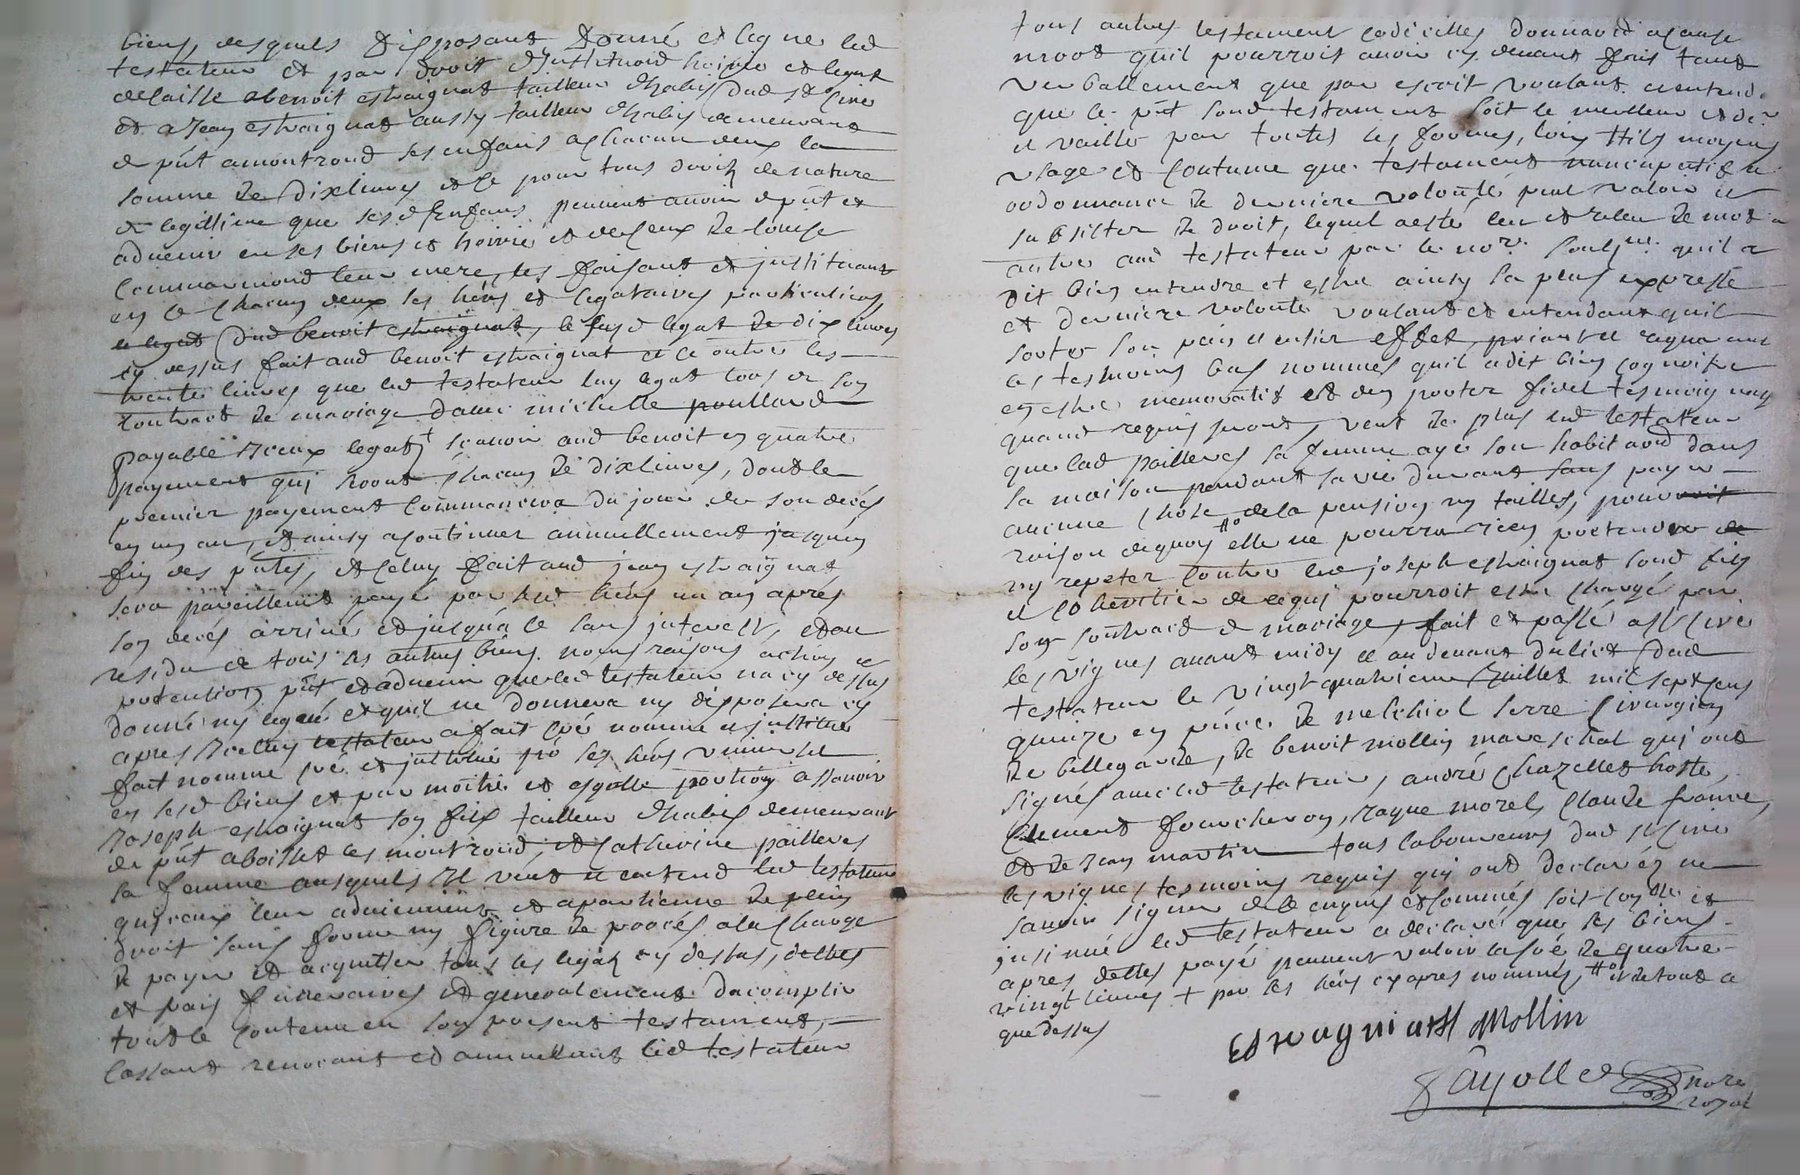 biens, desquels disposant donne et legue led
testateur et par droit d'institution hoirie et legat
delaisse a benoit estraignat tailleur d'habis dud st Cire
et a Jean estraignat aussy tailleur d'habis demeurant
de pnt a montrond ses enfans a chacun deux la
somme de dix livres et ce pour tous droitz de nature
et legittime que sesd enfans peuvent avoir de pnt et
advenir en ses biens et hoirie et de ceux de louise
leur mere, les faisant et instituant
en ce chacun deux ses hérs et legataires particuliers,
le legat dud benoit estraignat, le susd legat de dix livres
cy dessus fait aud benoit estraignat et ce outre les
trente livres que led testateur luy legat lors de son
contract de mariage avec michelle poullard
payable iceux legats scavoir aud benoit en quatre
payement qui seront chacun de dix livres, dont le
premier payement commencera du jour de son decés
en un an, et ainsy a continuer annuellement jusques
fin des pntes, et celuy fait aud jean estraignat
sera pareillemt payé par sesd hérs un an aprés
son decés arrivé et jusqua ce sans interest, et au
residu de tous ses autres biens noms raisons actions et
pretentions pnt et advenir que led testateur na cy dessus
donné ny legué et quil ne donnera ny disposera cy
apres icelluy testateur a fait créé nommé et institué
fait nomme créé et institué ses hérs universel
en sesd biens et par moitié et esgalle portion assavoir
Joseph estraignat son fils tailleur d'habis demeurant
de pnt a boisset les montrond, et Catherine pailleres
sa femme ausquels il veut et entend led testateur
que iceux leur adviennent et apartienne de plein
droit sans forme ny figure de procés a la charge
de payer et acquitter tous les legatz cy dessus, debtes
et frais funeraires et generalement dacomplir
tout le contenu en son present testament,
cassant revocant et annullant led testateur
tous autres testament codicilles donnaon a cause
mort quil pourroit avoir cy devant fais tant
verballement que par escrit voulant et entend
que le pnt sond testament soit le meilleur et
et vaille par toutes les formes, lois stils moyens
usage et coutume que testament nuncupatif et
ordonnance de derniere volonté peut valoir et
subsister de droit, lequel a esté leu et releu de mot a
autre aud testateur par le nore. soubsné. quil a
dit bien entendre et estre ainsy sa pure expresse
et derniere volonté voulant et entendant quil
sorte son plein et entier effet, priant et requerant
les tesmoins bas nommés quil a dit bien cognoitre
en estre memoratif et den porter fidel tesmoignage
quand requis seront, veut de plus led testateur
que lad pailleres sa femme aye son habitaon dans
sa maison pendant sa vie durant sans payer
aucune chose de la pension ny tailles, pour
raison dequoy elle ne pourra rien pretendre
ny repeter contre led joseph estraignat sond fils
et coheritier de ce qui pourroit estre chargé par
son contract de mariage, fait et passé a st Cire
les vignes avant midy et au devant du lict dud
testateur le vingt quatrieme Juillet mil sept cens
quinze en pnce. de melchiol serre cirurgien
de bellegarde, de benoit mollin mareschal qui ont
signés avec led testateur, andré Chazellet hoste,
Clement fourcheron, Jaque morel, Claude france,
et de Jean martin tous laboureurs dud st Cire
les vignes tesmoins requis qui ont declarés ne
scavoir signer de ce enquis et sommés soit con.lle et
insinué led testateur a declaré que ses biens
apres dettes payé peuvent valoir la soe de quatre
vingt livres + par les hérs cy apres nommés, # et de tout ce
que dessus
Estragniatt Mollin
Fayolle nore
royal